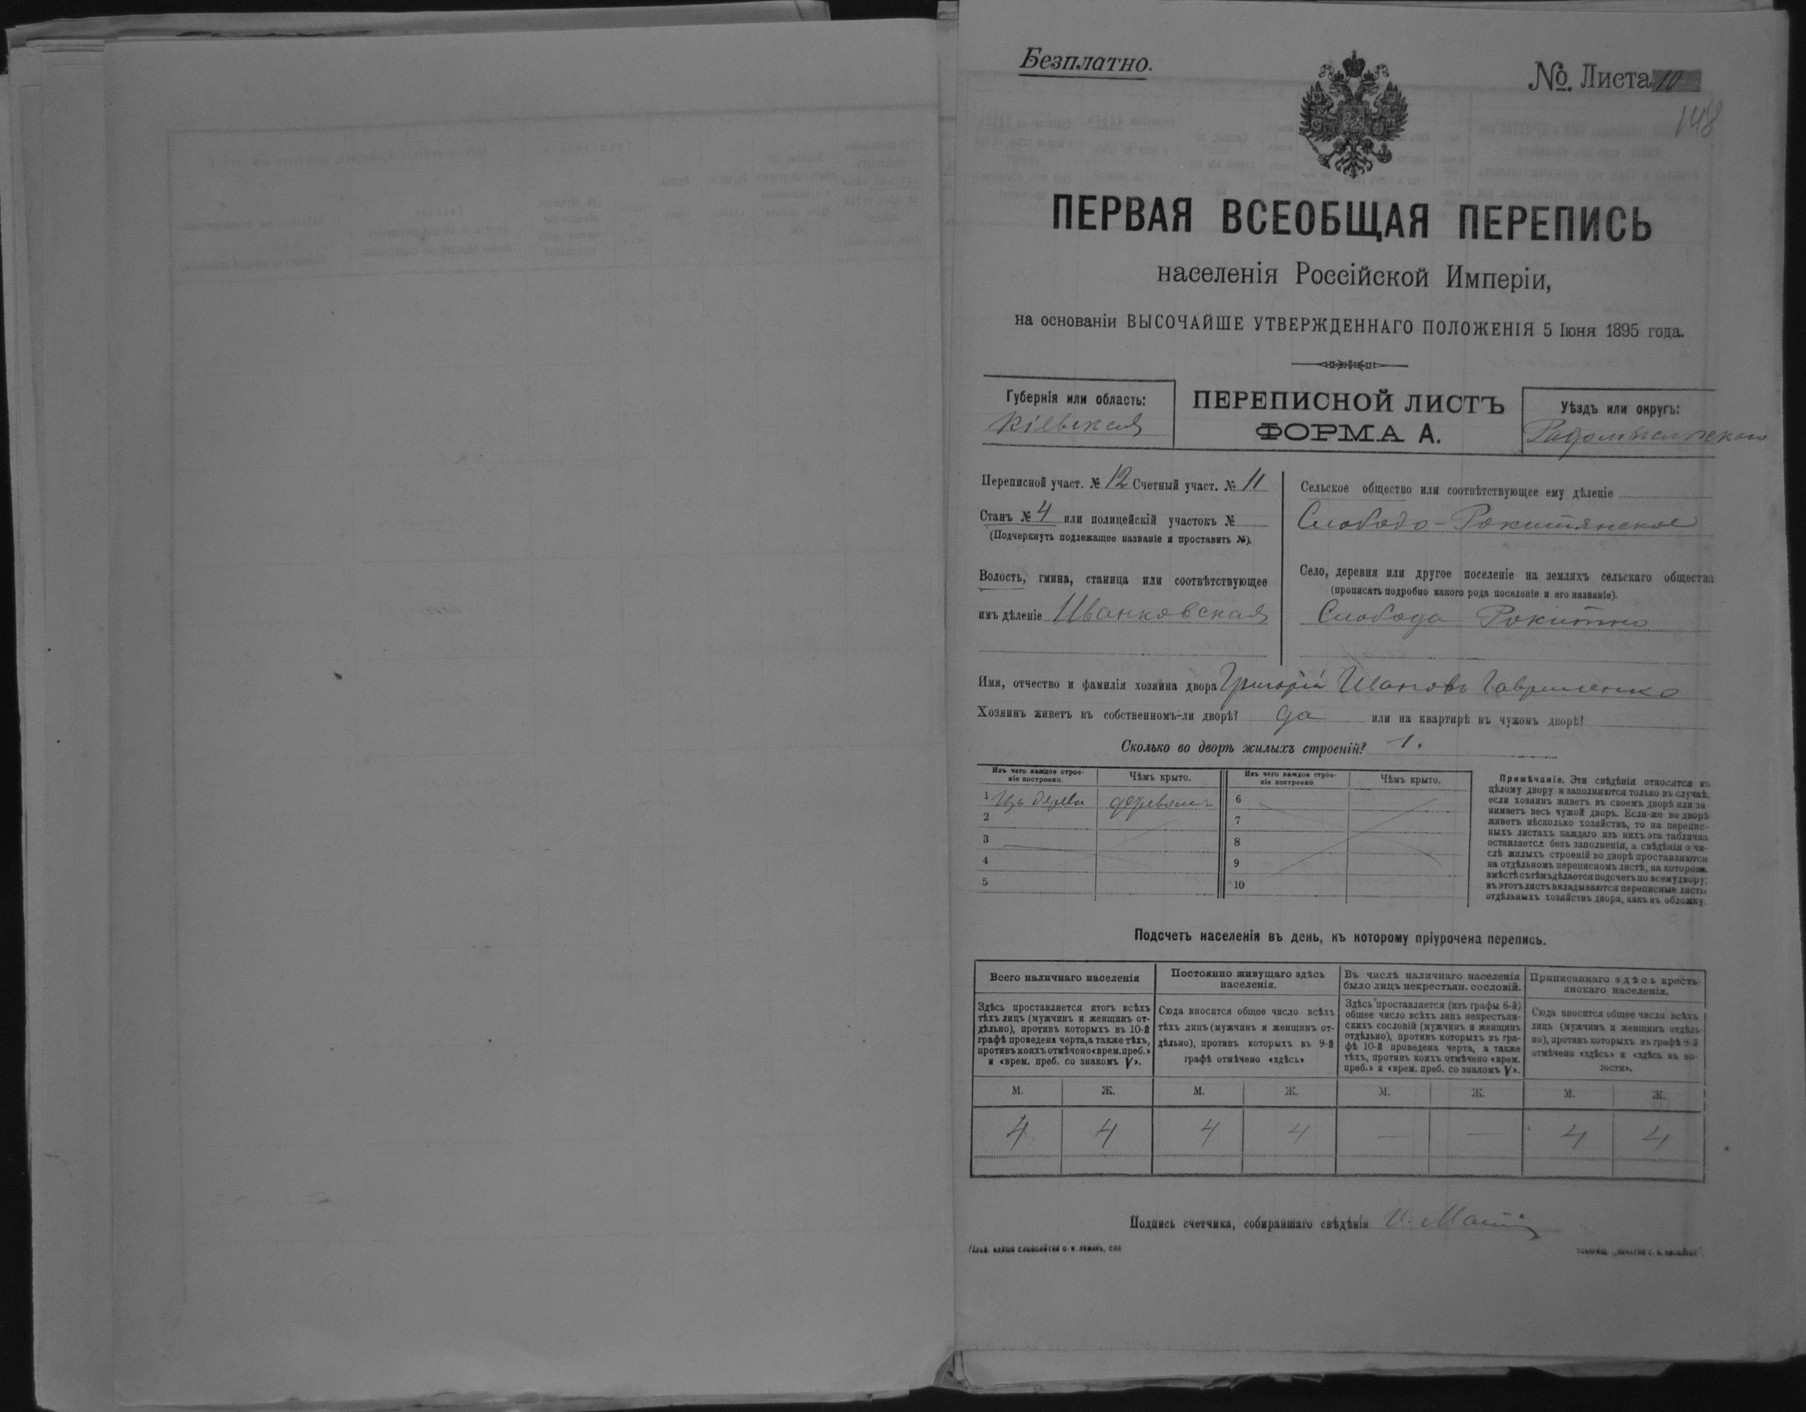 Безплатно.
№ Листа 10
148
ПЕРВАЯ ВСЕОБЩАЯ ПЕРЕПИСЬ
населенія Россійской Имперіи,
на основаніи ВЫСОЧАЙШЕ УТВЕРЖДЕННАГО ПОЛОЖЕНІЯ 5 Іюня 1895 года.
Губернія или область:
Кіевская
ПЕРЕПИСНОЙ ЛИСТЪ
ФОРМА А.
Уѣздъ или округъ:
Переписной участ. № 12 Счетный участ. № 11
Станъ № 4 или полицейскій участокъ №
(Подчеркнуть подлежащее названіе и проставить №).
Волость, гмина, станица или соотвѣтствующее
имъ дѣленіе Иванковская
Сельское общество или соотвѣтствующее ему дѣленіе
Слободо-Рокитянское
Село, деревня или другое поселеніе на земляхъ сельскаго общества
(прописать подробно какого рода поселеніе и его названіе).
Слобода Рокитно
Имя, отчество и фамилія хозяина двора Григорій Ивановъ Гавриленко
Хозяинъ живетъ въ собственномъ-ли дворѣ? да или на квартирѣ въ чужомъ дворѣ?
Сколько во дворѣ жилыхъ строеній? 1.
Изъ чего каждое строе-
ніе построено.
Чѣмъ крыто.
Изъ чего каждое строе-
ніе построено.
Чѣмъ крыто.
1 Изъ дерева
6
2
7
3
8
4
9
5
10
Примѣчаніе. Эти свѣдѣнія относятся къ
цѣлому двору и заполняются только въ случаѣ,
если хозяинъ живетъ въ своемъ дворѣ или за-
нимаетъ весь чужой дворъ. Если-же во дворѣ
живетъ нѣсколько хозяйствъ, то на перепис-
ныхъ листахъ каждаго изъ нихъ эта табличка
оставляется безъ заполненія, а свѣдѣнія о чи-
слѣ жилыхъ строеній во дворѣ проставляются
на отдѣльномъ переписномъ листѣ, на которомъ
вмѣстѣ съ тѣмъ дѣлается подсчетъ по всему двору;
въ этотъ листъ вкладываются переписные листы
отдѣльныхъ хозяйствъ двора, какъ въ обложку.
Подсчетъ населенія въ день, къ которому пріурочена перепись.
Всего наличнаго населенія
Здѣсь проставляется итогъ всѣхъ
тѣхъ лицъ (мужчинъ и женщинъ от-
дѣльно), противъ которыхъ въ 10-й
графѣ проведена черта, а также тѣхъ,
противъ коихъ отмѣчено «врем. преб.»
и «врем. преб. со знакомъ V».
Постоянно живущаго здѣсь
населенія.
Сюда вносится общее число всѣхъ
тѣхъ лицъ (мужчинъ и женщинъ от-
дѣльно), противъ которыхъ въ 9-й
графѣ отмѣчено «здѣсь»
Въ числѣ наличнаго населенія
было лицъ некрестьян. сословій.
Здѣсь проставляется (изъ графы 6-й)
общее число всѣхъ лицъ некрестьян-
скихъ сословій (мужчинъ и женщинъ
отдѣльно), противъ которыхъ въ гра-
фѣ 10-й проведена черта, а также
тѣхъ, противъ коихъ отмѣчено «врем.
преб.» и «врем. преб. со знакомъ V».
Приписаннаго здѣсь кресть-
янскаго населенія.
Сюда вносится общее число всѣхъ
лицъ (мужчинъ и женщинъ отдѣль-
но), противъ которыхъ въ графѣ 8-й
отмѣчено «здѣсь» и «здѣсь въ во-
лости».
М. Ж. М. Ж. М. Ж. М. Ж.
4 4 4 4 — — 4 4
Подпись счетчика, собиравшаго свѣдѣнія